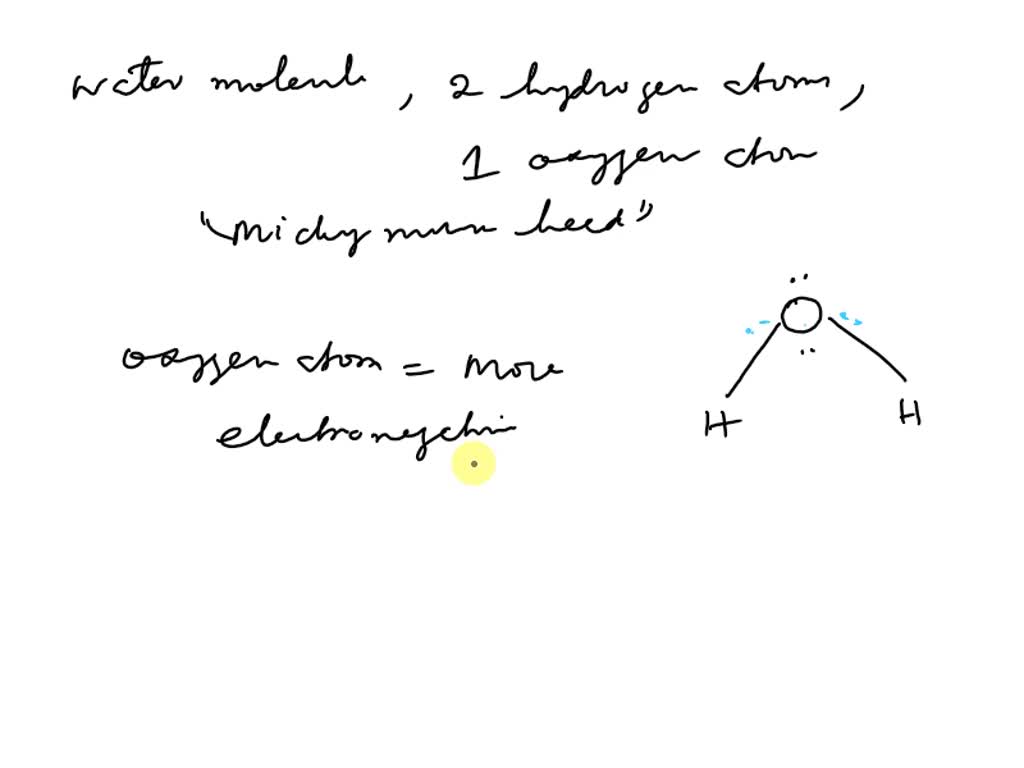 water molecule, 2 hydrogen atoms,
1 oxygen atom
"Micky mouse head"
oxygen atom = More
electronegative
H
H